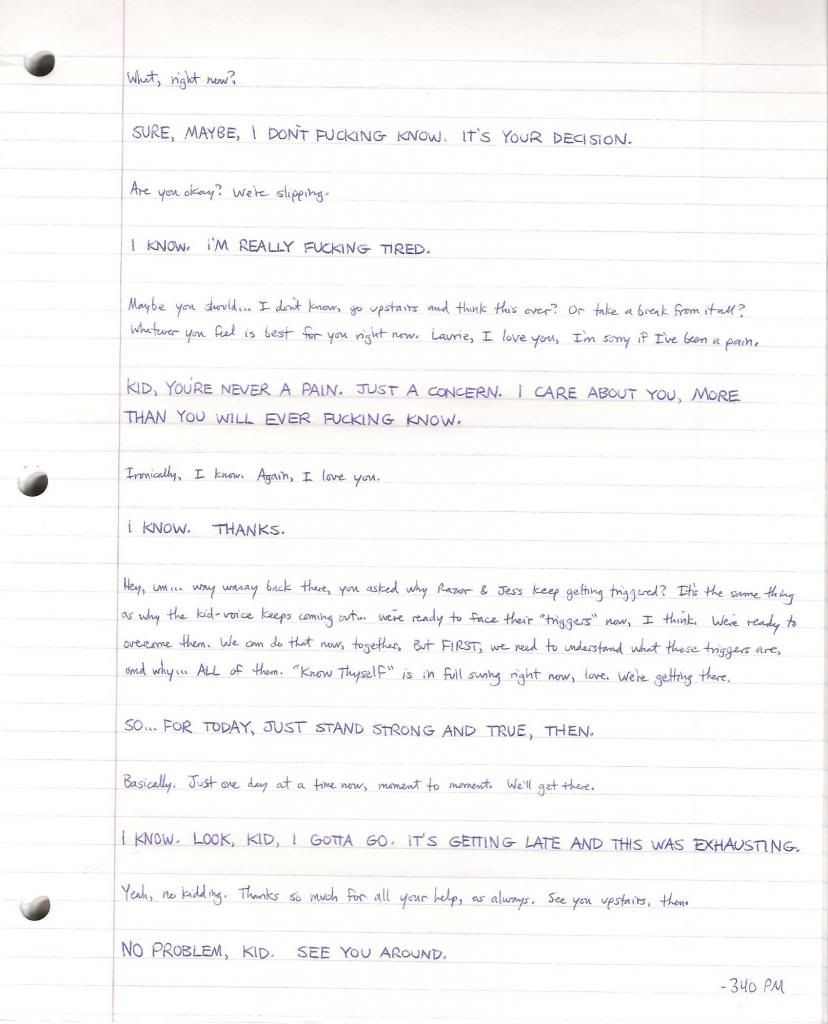 What, right now?
SURE, MAYBE, I DON'T FUCKING KNOW. IT'S YOUR DECISION.
Are you okay? We're slipping.
I KNOW. I'M REALLY FUCKING TIRED.
Maybe you should... I don't know, go upstairs and think this over? Or take a break from it all?
Whatever you feel is best for you right now. Laurie, I love you, I'm sorry if I've been a pain.
KID, YOU'RE NEVER A PAIN. JUST A CONCERN. I CARE ABOUT YOU, MORE
THAN YOU WILL EVER FUCKING KNOW.
Ironically, I know. Again, I love you.
I KNOW. THANKS.
Hey, um... way waaay back there, you asked why Razor & Jess keep getting triggered? It's the same thing
as why the kid-voice keeps coming out... we're ready to face their "triggers" now, I think. We're ready to
overcome them. We can do that now, together. But FIRST, we need to understand what those triggers are,
and why... ALL of them. "Know Thyself" is in full swing right now, love. We're getting there.
SO... FOR TODAY, JUST STAND STRONG AND TRUE, THEN.
Basically. Just one day at a time now, moment to moment. We'll get there.
I KNOW. LOOK, KID, I GOTTA GO. IT'S GETTING LATE AND THIS WAS EXHAUSTING.
Yeah, no kidding. Thanks so much for all your help, as always. See you upstairs, then.
NO PROBLEM, KID. SEE YOU AROUND.
-340 PM